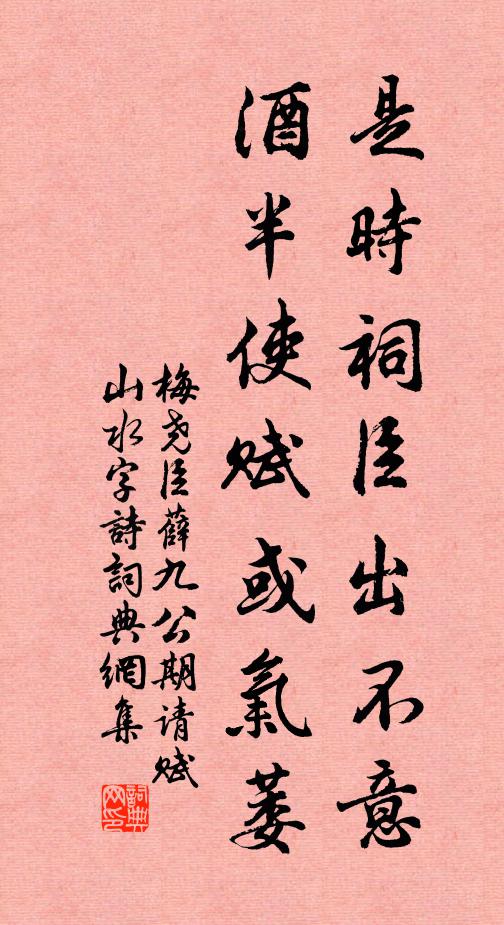 是時祠臣出不意
酒半使賦或氣萎
梅尧臣薛九公期请赋
山水字詩詞典網集
詞典网印